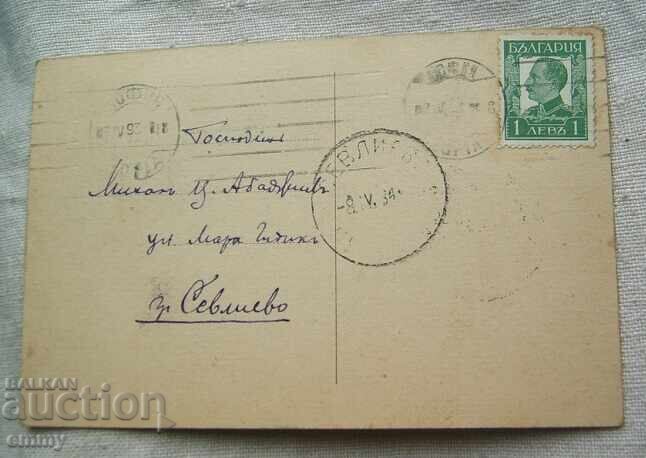 БЪЛГАРИЯ
1 ЛЕВЪ 1
СЕВЛИЕВО
-8.IV.34
Господинъ
Михаил Ц. Абаджиевъ
ул. Мара
гр Севлиево
BALKAN
auction
emmy